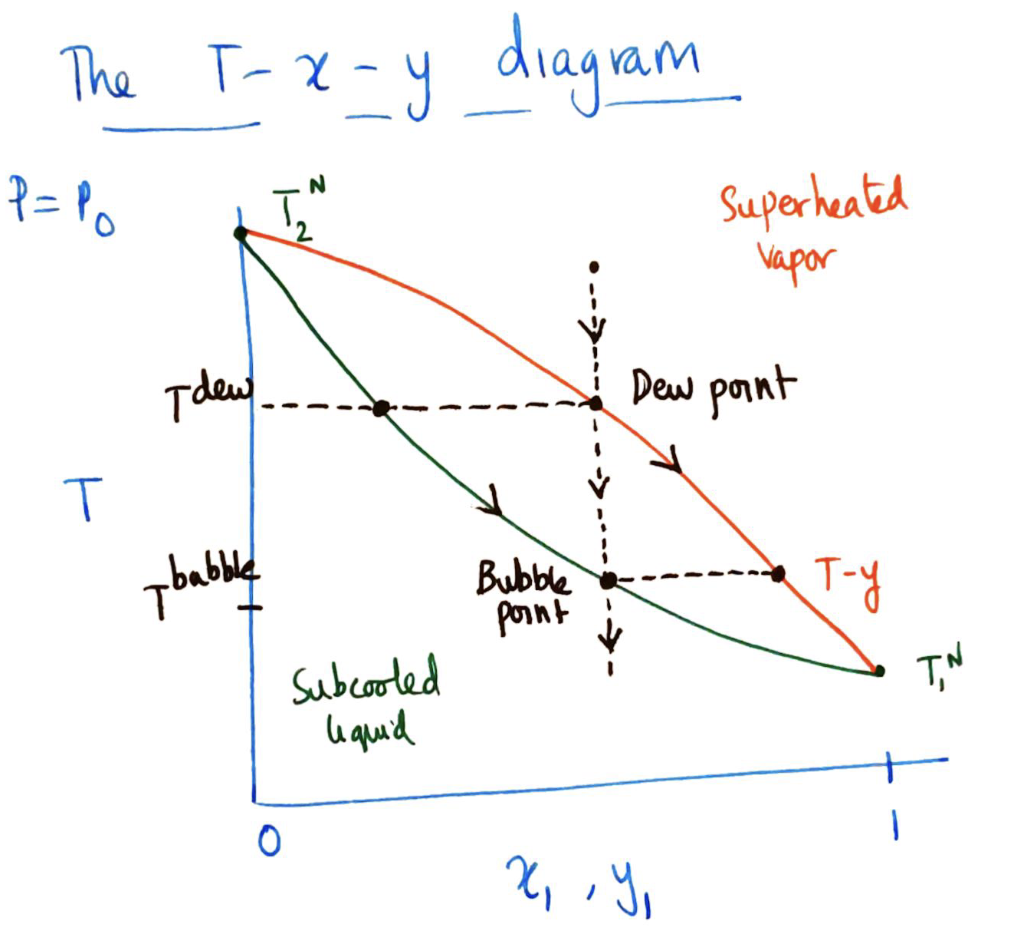 The T-x-y diagram
P = P₀
T₂ᴺ
Superheated
vapor
T dew
Dew point
T
T bubble
Bubble
point
T-y
Subcooled
liquid
T₁ᴺ
0
1
x₁, y₁